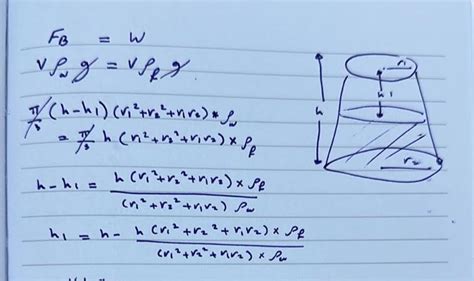 F_B = W
V ρ_w g = V ρ_f g
π/3 (h-h1) (r1²+r2²+r1r2) * ρ_w
= π/3 h (r1²+r2²+r1r2) × ρ_f
h-h1 = h (r1²+r2²+r1r2) × ρ_f / (r1²+r2²+r1r2) ρ_w
h1 = h - h (r1²+r2²+r1r2) × ρ_f / (r1²+r2²+r1r2) × ρ_w
r1
h1
h
r2